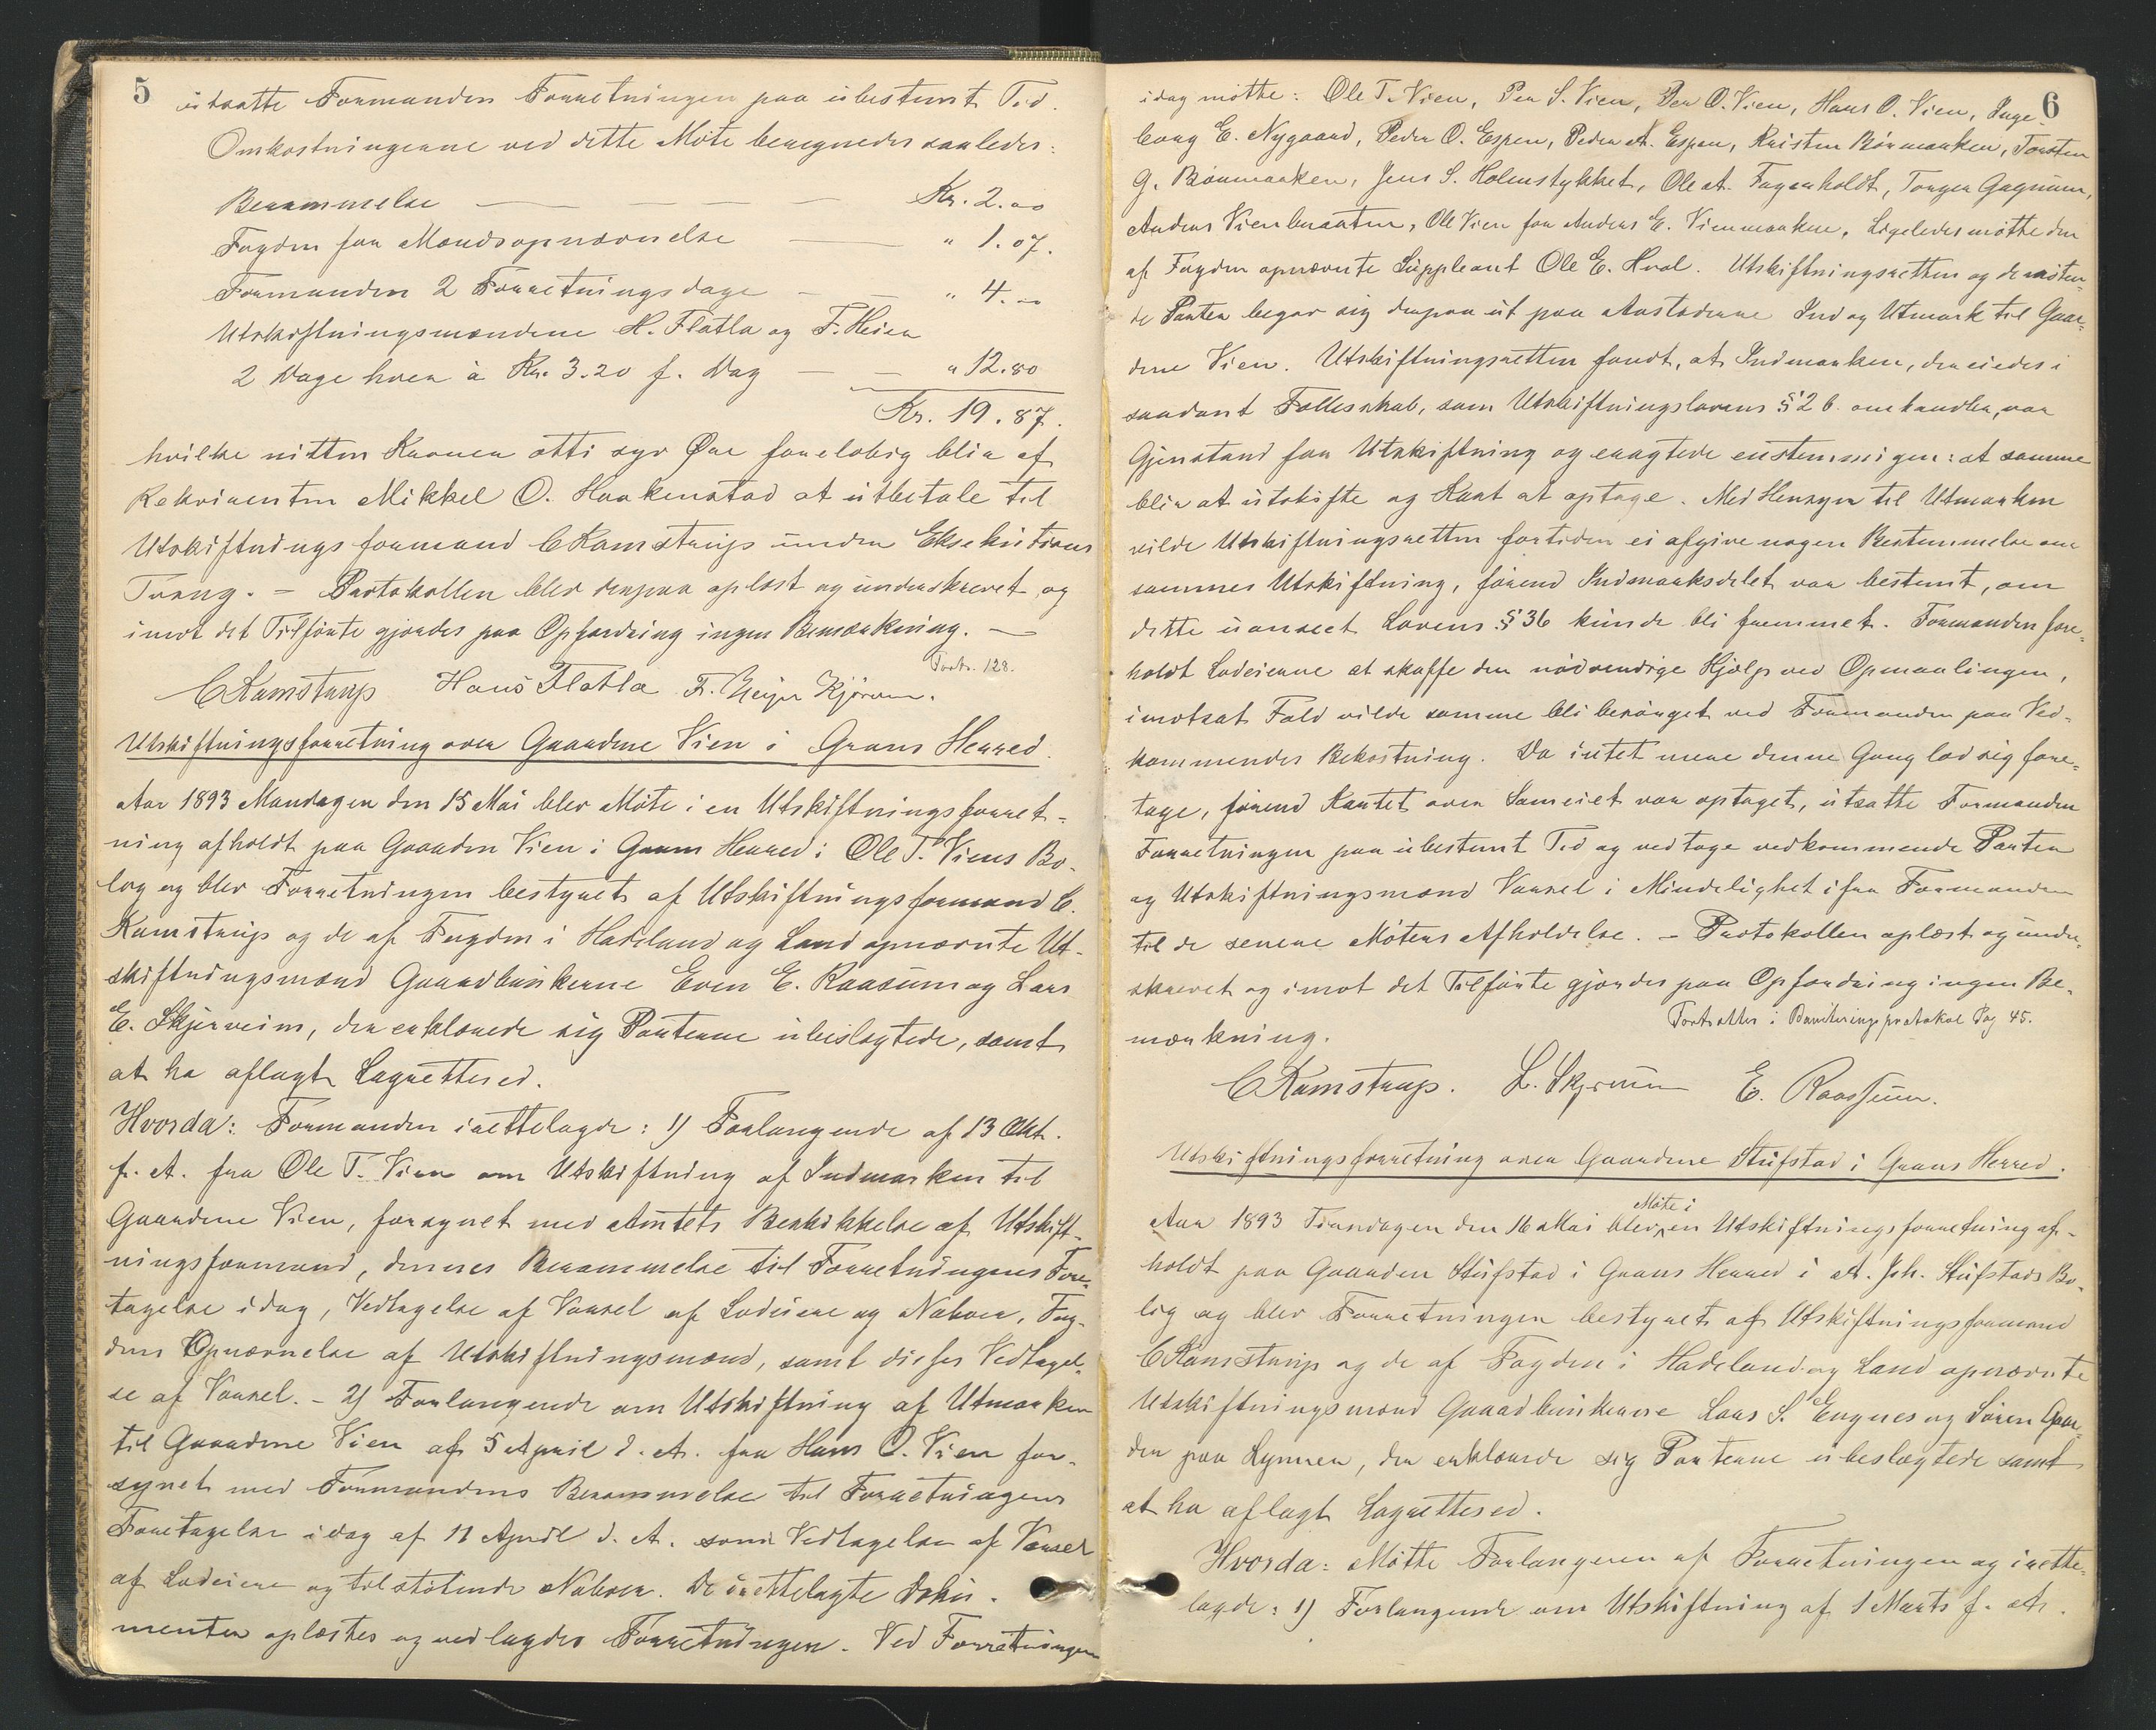 5
utsatte Formanden Forretningen paa ubestemt Tid.
Omkostningerne ved dette Møte beregnedes saaledes:
Berammelse — — — — Kr. 2.00
Fogden for Mandsopnævnelse — — " 1.07.
Formanden 2 Forretningsdage — — " 4.00
Utskiftningsmændene H. Flatla og F. Heier
2 Dage hver à Kr. 3.20 f. Dag — — " 12.80
Kr. 19.87.
hvilke nitten Kroner otti syv Øre foreløbig blir af
Rekvirenten Mikkel O. Haakenstad at utbetale til
Utskiftningsformand C Kamstrup under Eksekutions
Tvang. – Protokollen blev derpaa oplæst og underskrevet og
imot det Tilførte gjordes paa Opfordring ingen Bemærkning. —
Forts. 128.
C Kamstrup Hans Flatla F. Heijer Kjørven.
Utskiftningsforretning over Gaardene Vien i Grans Herred.
Aar 1893 Mandagen den 15 Mai blev Møte i en Utskiftningsforret-
ning afholdt paa Gaarden Vien i Grans Herred i Ole T. Viens Bo-
lig og blev Forretningen bestyret af Utskiftningsformand C.
Kamstrup og de af Fogden i Hadeland og Land opnævnte Ut-
skiftningsmænd Gaardbrukerne Even E. Raasum og Lars
E. Skjerveim, der erklærede sig Parterne ubeslægtede, samt
at ha aflagt Lagrettesed.
Hvorda: Formanden irettelagde: 1) Forlangende af 13 Okt.
f. A. fra Ole T. Vien om Utskiftning af Indmarken til
Gaardene Vien, forsynet med Amtets Beskikkelse af Utskift-
ningsformand, dennes Berammelse til Forretningens Fore-
tagelse idag, Vedtagelse af Varsel af Lodeiere og Naboer, Fog-
dens Opnævnelse af Utskiftningsmænd, samt disses Vedtagel-
se af Varsel. – 2) Forlangende om Utskiftning af Utmarken
til Gaardene Vien af 5 April d. A. fra Hans O. Vien for-
synet med Formandens Berammelse til Forretningens
Foretagelse idag af 11 April d. A. samt Vedtagelse af Varsel
af Lodeiere og tilstøtende Naboer. De irettelagte Doku-
menter oplæstes og vedlagdes Forretningen. Ved Forretningen
6
idag møtte: Ole T. Vien, Per S. Vien, Per O. Vien, Hans O. Vien, Inge-
borg E. Nygaard, Peder O. Espen, Peder A. Espen, Kristen Børmarken, Torsten
G. Børmarken, Jens S. Holmstykket, Ole A. Fagerholdt, Torger Gagnum,
Anders Vienbraaten, Ole Vien for Anders E. Vienmarken, Ligeledes møtte den
af Fogden opnævnte Suppleant Ole E. Hval. Utskiftningsretten og de møten-
de Parter begav sig derpaa ut paa Aastederne Ind og Utmark til Gaar-
dene Vien. Utskiftningsretten fandt, at Indmarken, der eiedes i
saadant Fællesskab, som Utskiftningslovens § 2 b. omhandler, var
Gjenstand for Utskiftning og eragtede enstemmigen: at samme
blir at utskifte og Kart at optage. Med Hensyn til Utmarken
vilde Utskiftningsretten fortiden ei afgive nogen Bestemmelse om
sammes Utskiftning, førend Indmarksdelet var bestemt, om
dette uanseet Lovens § 36 kunde bli fremmet. Formanden fore-
holdt Lodeierne at skaffe den nødvendige Hjælp ved Opmaalingen,
imotsat Fald vilde samme bli besørget ved Formanden paa Ved-
kommendes Bekostning. Da intet mere denne Gang lod sig fore-
tage, førend Kartet over Sameiet var optaget, utsatte Formanden
Forretningen paa ubestemt Tid og vedtage vedkommende Parter
og Utskiftningsmænd Varsel i Mindelighet ifra Formanden
til de senere Møters Afholdelse. – Protokollen oplæst og under-
skrevet og imot det Tilførte gjordes paa Opfordring ingen Be-
mærkning.
Fortsættes i Boniteringsprotokol Pag 45.
C Kamstrup. L. Skjerveim E. Raassum.
Utskiftningsforretning over Gaardene Stufstad i Grans Herred.
Aar 1893 Tirsdagen den 16 Mai blev Møte i en Utskiftningsforretning af-
holdt paa Gaarden Stufstad i Grans Herred i A. Joh. Stufstads Bo-
lig og blev Forretningen bestyret af Utskiftningsformand
C Kamstrup og de af Fogden i Hadeland og Land opnævnte
Utskiftningsmænd Gaardbrukerne Lars S. Engnes og Søren Gaar-
der paa Lynner, der erklærede sig Parterne ubeslægtede samt
at ha aflagt Lagrettesed.
Hvorda: Møtte Forlangeren af Forretningen og irette-
lagde: 1) Forlangende om Utskiftning af 1 Marts f. A.